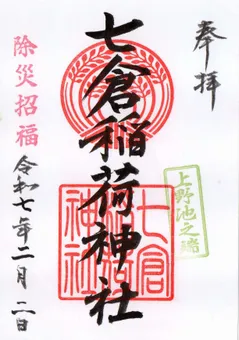 奉拝
上野池之端
七倉稲荷神社
七倉稲荷神社
除災招福
令和七年二月二日